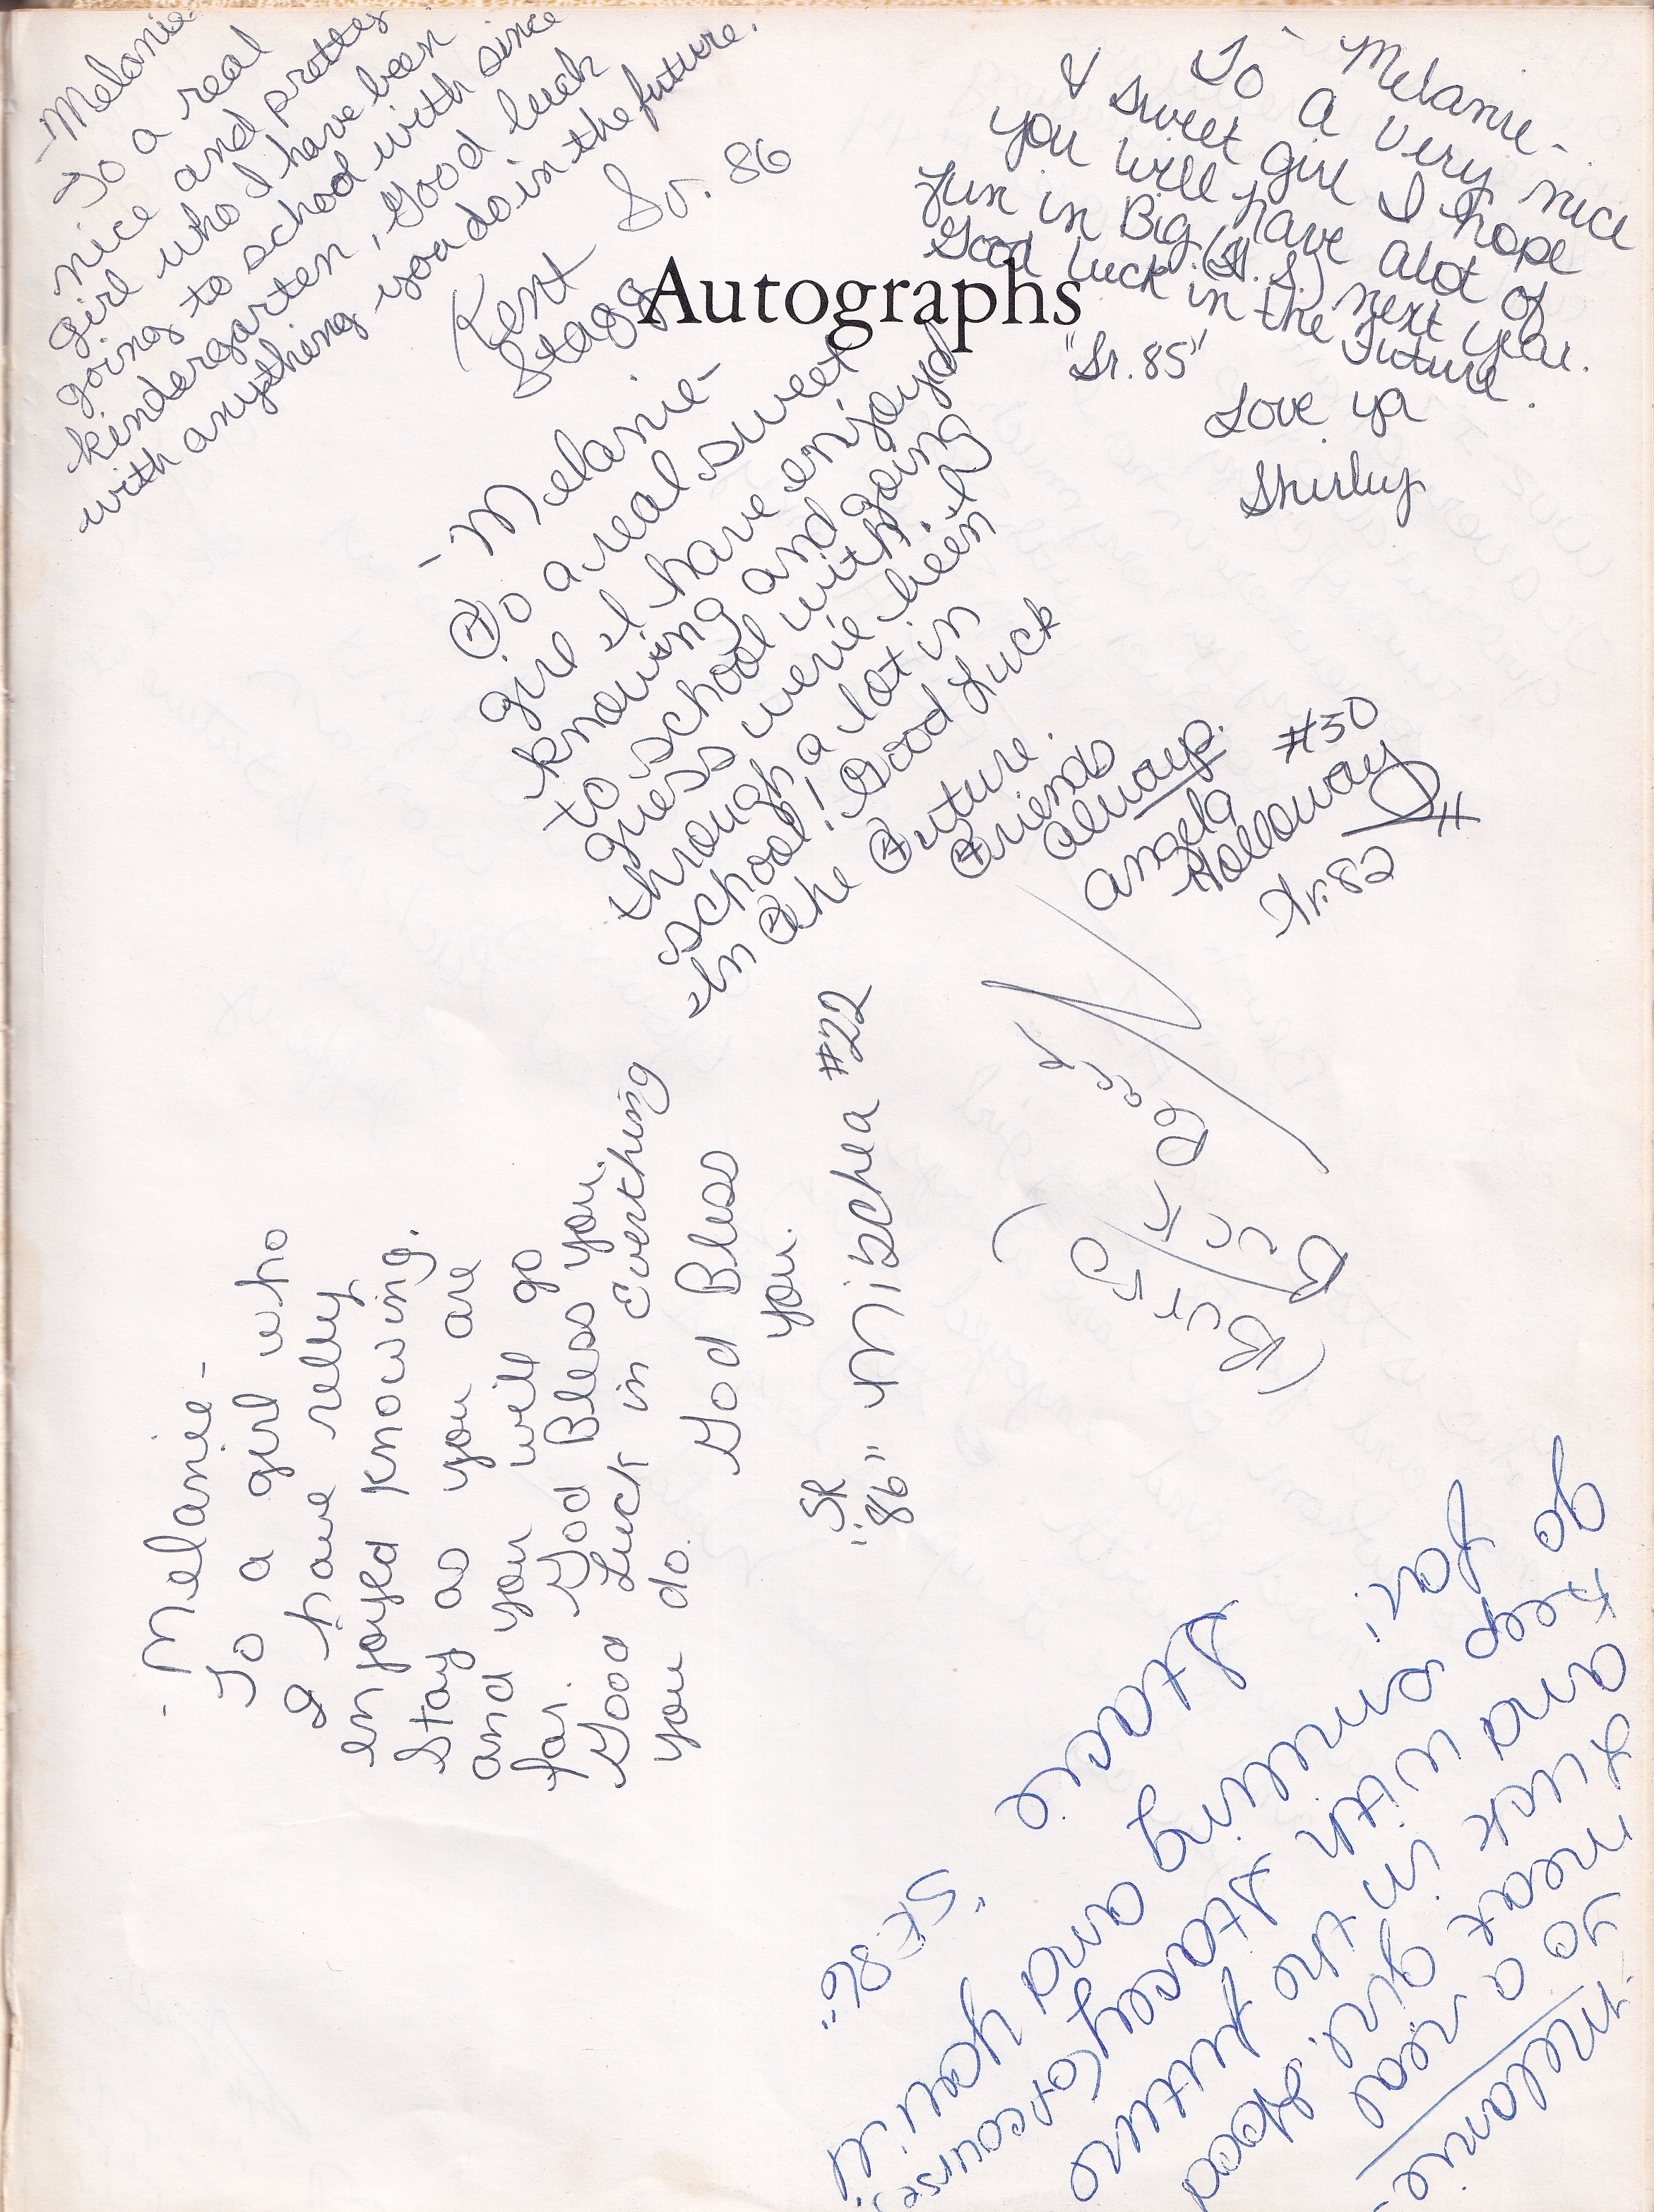 -Melanie-
To a real
nice and prettey
girl who I have been
going to school with since
kindergarten, Good luck
with anything you do in the future.
Kent
Stagg
Sr. 86
To Melanie-
To a very nice
& sweet girl I hope
you will have alot of
fun in Big (H.S.) next year.
Good luck in the Future.
"Sr. 85"
Love ya
Shirley
Autographs
-Melanie-
To a real sweet
girl I have enjoyd
knowing and going
to school with. I
guess werie been
through a lot in
school! Good Luck
In The Future.
Friends
always.
Angela
Holloway
#30
-Melanie-
To a girl who
I have relly
enjoyed knowing.
Stay as you are
and you will go
far. God Bless you.
Good Luck in everthing
you do.
God Bless
you.
"SR
86"
Mibchea #22
Melanie,
To a real
neat girl. Good
luck in the future
and with Stacey (of course)
Keep running and you'll
go far!
Stacie
"SR 86"